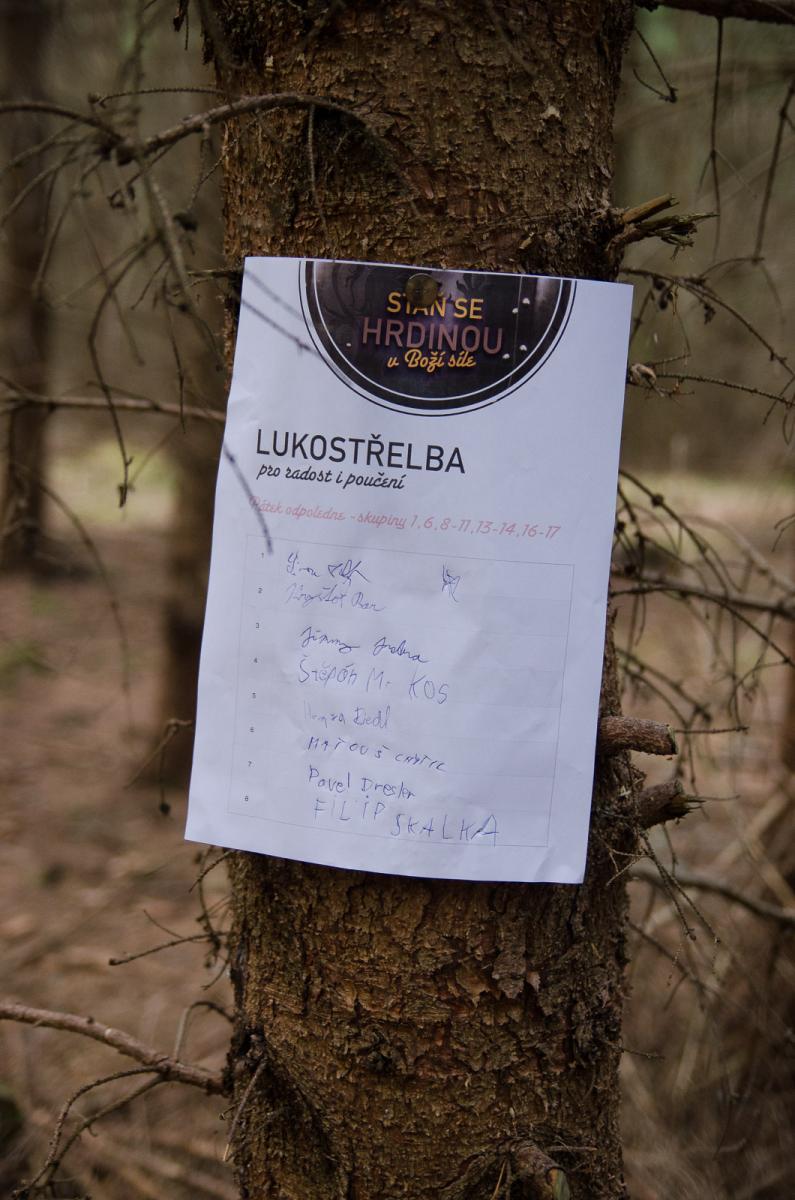 STAŇ SE
HRDINOU
v Boží síle
LUKOSTŘELBA
pro radost i poučení
Pátek odpoledne - skupiny 1,6,8-11,13-14,16-17
1
2
3 Jimmy
4 Štěpán M. KOS
5 Dedl
6 MATOUŠ
7 Pavel Dresler
8 FILIP SKALKA